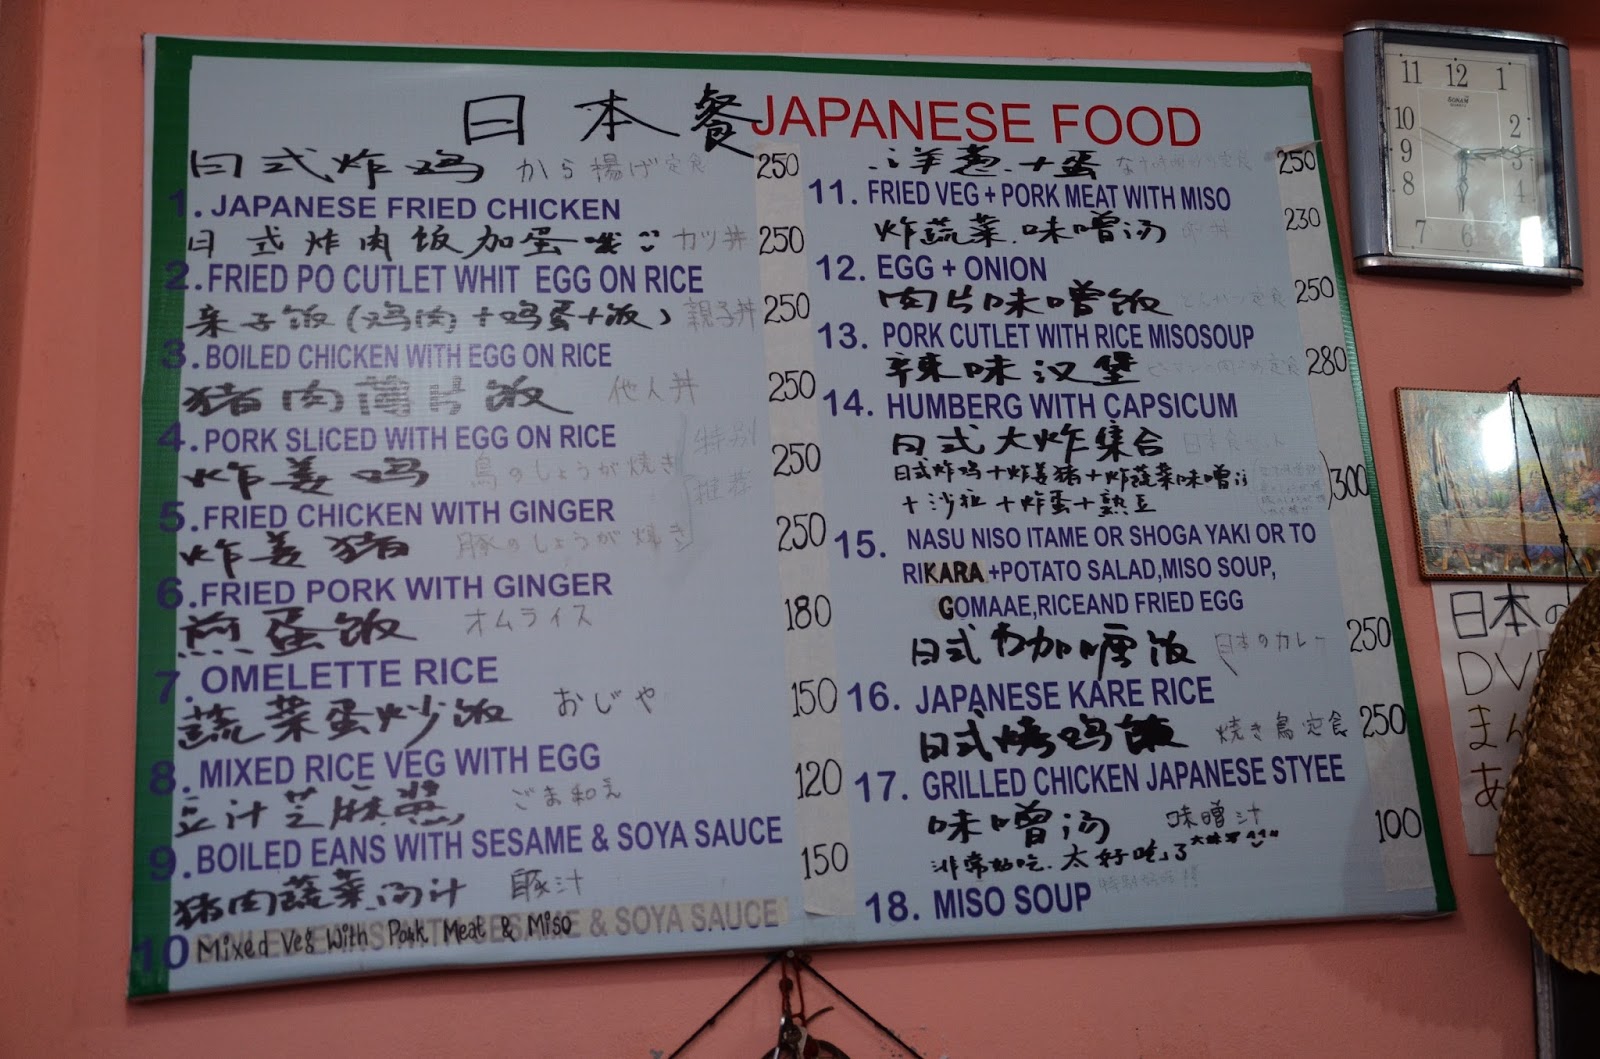 日本餐 JAPANESE FOOD
日式炸鸡 から揚げ定食 250
1. JAPANESE FRIED CHICKEN
日式炸肉饭加蛋哦 カツ丼 250
2. FRIED PO CUTLET WHIT EGG ON RICE
亲子饭(鸡肉+鸡蛋+饭) 親子丼 250
3. BOILED CHICKEN WITH EGG ON RICE
猪肉薄片饭 他人丼 250
4. PORK SLICED WITH EGG ON RICE
特别
炸姜鸡 鳥のしょうが焼き 250
推荐
5. FRIED CHICKEN WITH GINGER
炸姜猪 豚のしょうが焼き 250
6. FRIED PORK WITH GINGER
煎蛋饭 オムライス 180
7. OMELETTE RICE
蔬菜蛋炒饭 おじや 150
8. MIXED RICE VEG WITH EGG
豆汁芝麻酱 ごま和え 120
9. BOILED EANS WITH SESAME & SOYA SAUCE
猪肉蔬菜汤汁 豚汁 150
10 Mixed Veg With Pork Meat & Miso
& SOYA SAUCE
洋葱+蛋 250
11. FRIED VEG + PORK MEAT WITH MISO
炸蔬菜味噌汤 230
12. EGG + ONION
肉片味噌饭 とんかつ定食 250
13. PORK CUTLET WITH RICE MISOSOUP
辛辣味汉堡 280
14. HUMBERG WITH CAPSICUM
日式大炸集合
日式炸鸡+炸姜猪+炸蔬菜味噌汤 300
+沙拉+炸蛋+熟豆
15. NASU NISO ITAME OR SHOGA YAKI OR TO
RIKARA+POTATO SALAD,MISO SOUP,
GOMAAE,RICEAND FRIED EGG
日式加喱饭 日本のカレー 250
16. JAPANESE KARE RICE
日式烤鸡饭 焼き鳥定食 250
17. GRILLED CHICKEN JAPANESE STYEE
味噌汤 味噌汁 100
非常好吃.太好吃了
18. MISO SOUP
11 12 1
10 2
9 3
8
7 6
日本の
DV
まん
あ